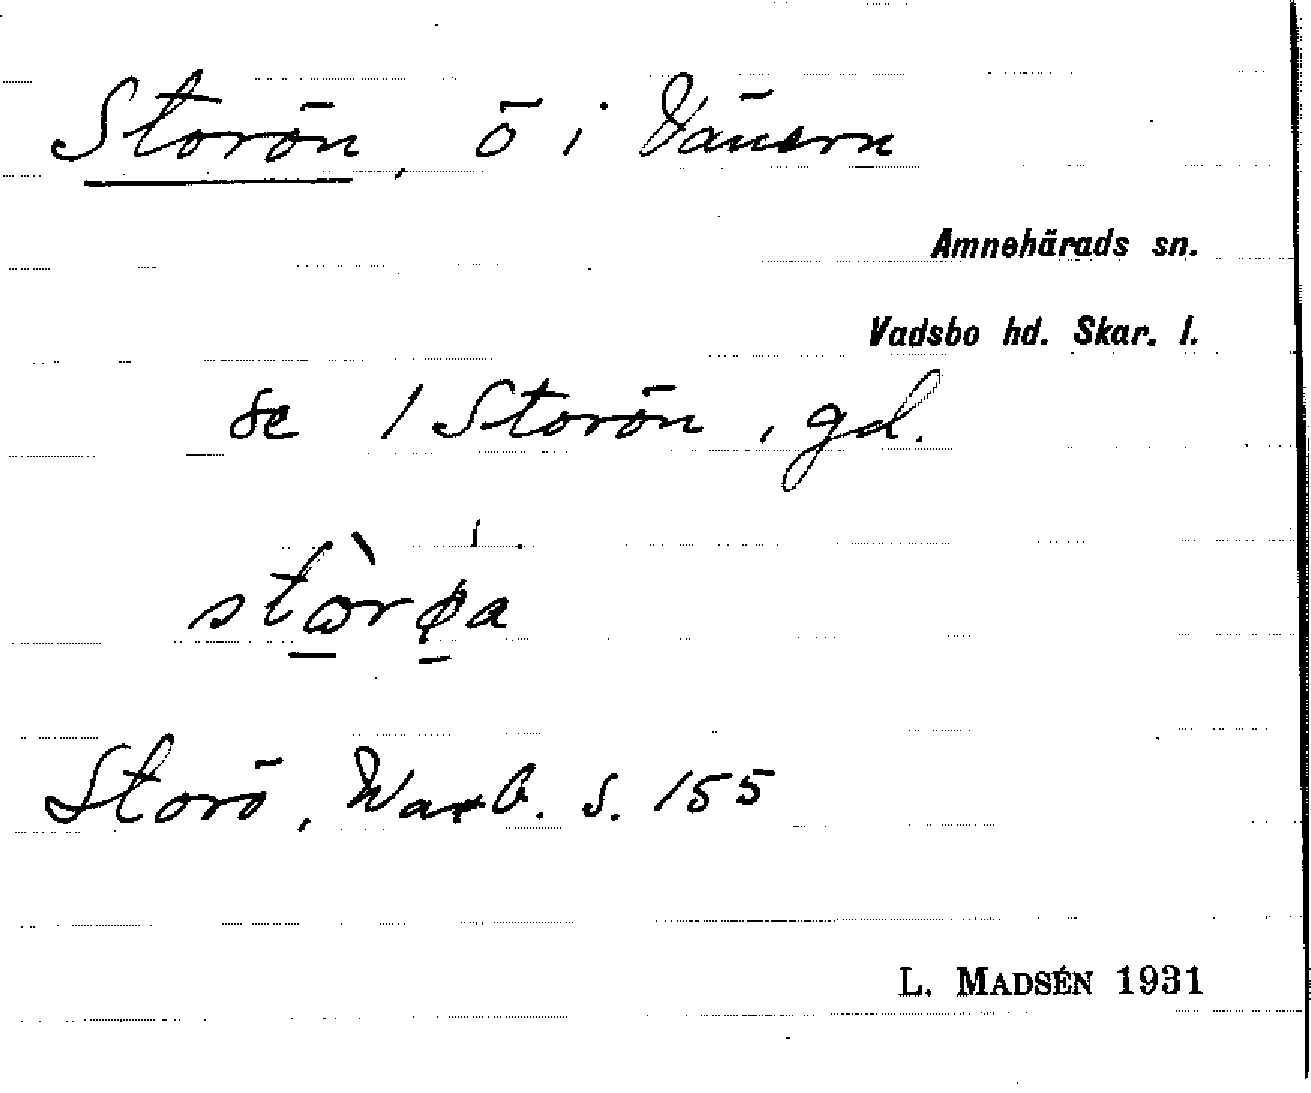 Storön, ö i Vänern
Amnehärads sn.
Vadsbo hd. Skar. l.
se 1 Storön, gd.
stὼ̲rø̲a
Storö, Warb. s. 155
L. MADSÉN 1931